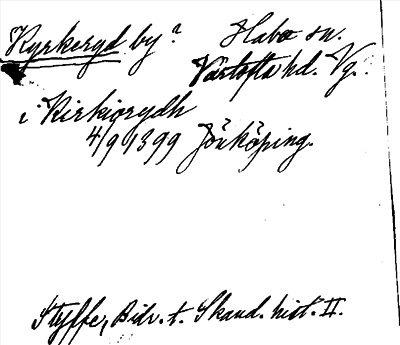 Kyrkeryd by? Habo sn.
Vartofta hd. Vg.
i Kirkiorydh
4/9 1399 Jönköping.
Styffe, Bidr. t. Skand. hist. II.